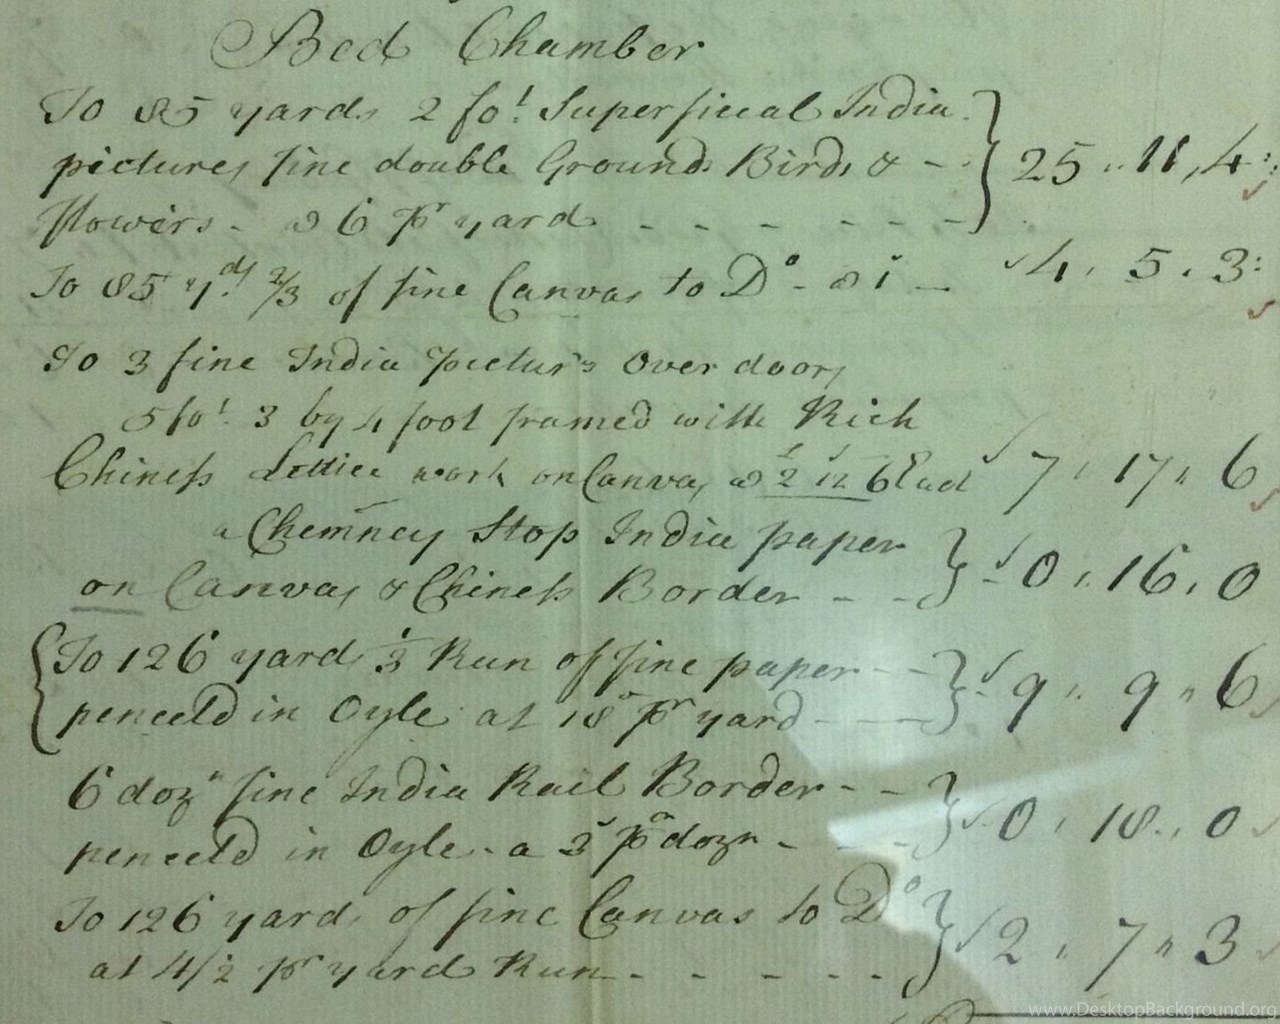 Bed Chamber
To 85 yards 2 fot Superficial India
pictures fine double Grounds Birds & - - 25 .. 11 , 4 :
flowers - a 6 pr yard - - - - - - -
To 85 yds 2/3 of fine Canvas to Do - a 1s - 4 . 5 . 3 :
To 3 fine India Picturs Over doors
5 fot 3 by 4 foot framed with Rich
Chiness Lettice work on Canvas a 2 12 6 Each 7 . 17 " 6
a Chemney Stop India paper
on Canvas & Chiness Border - - - 0 .. 16 . 0
To 126 yards 1/3 Run of fine paper - -
penceld in Oyle at 18d pr yard - - - 9 .. 9 " 6
6 dozn fine India Rail Border - -
penceld in Oyle - a 3s pr dozn - - - 0 . 18 .. 0
To 126 yards of fine Canvas to Do
at 4/2 pr yard Run - - - - - - 2 " 7 " 3
www.DesktopBackground.org